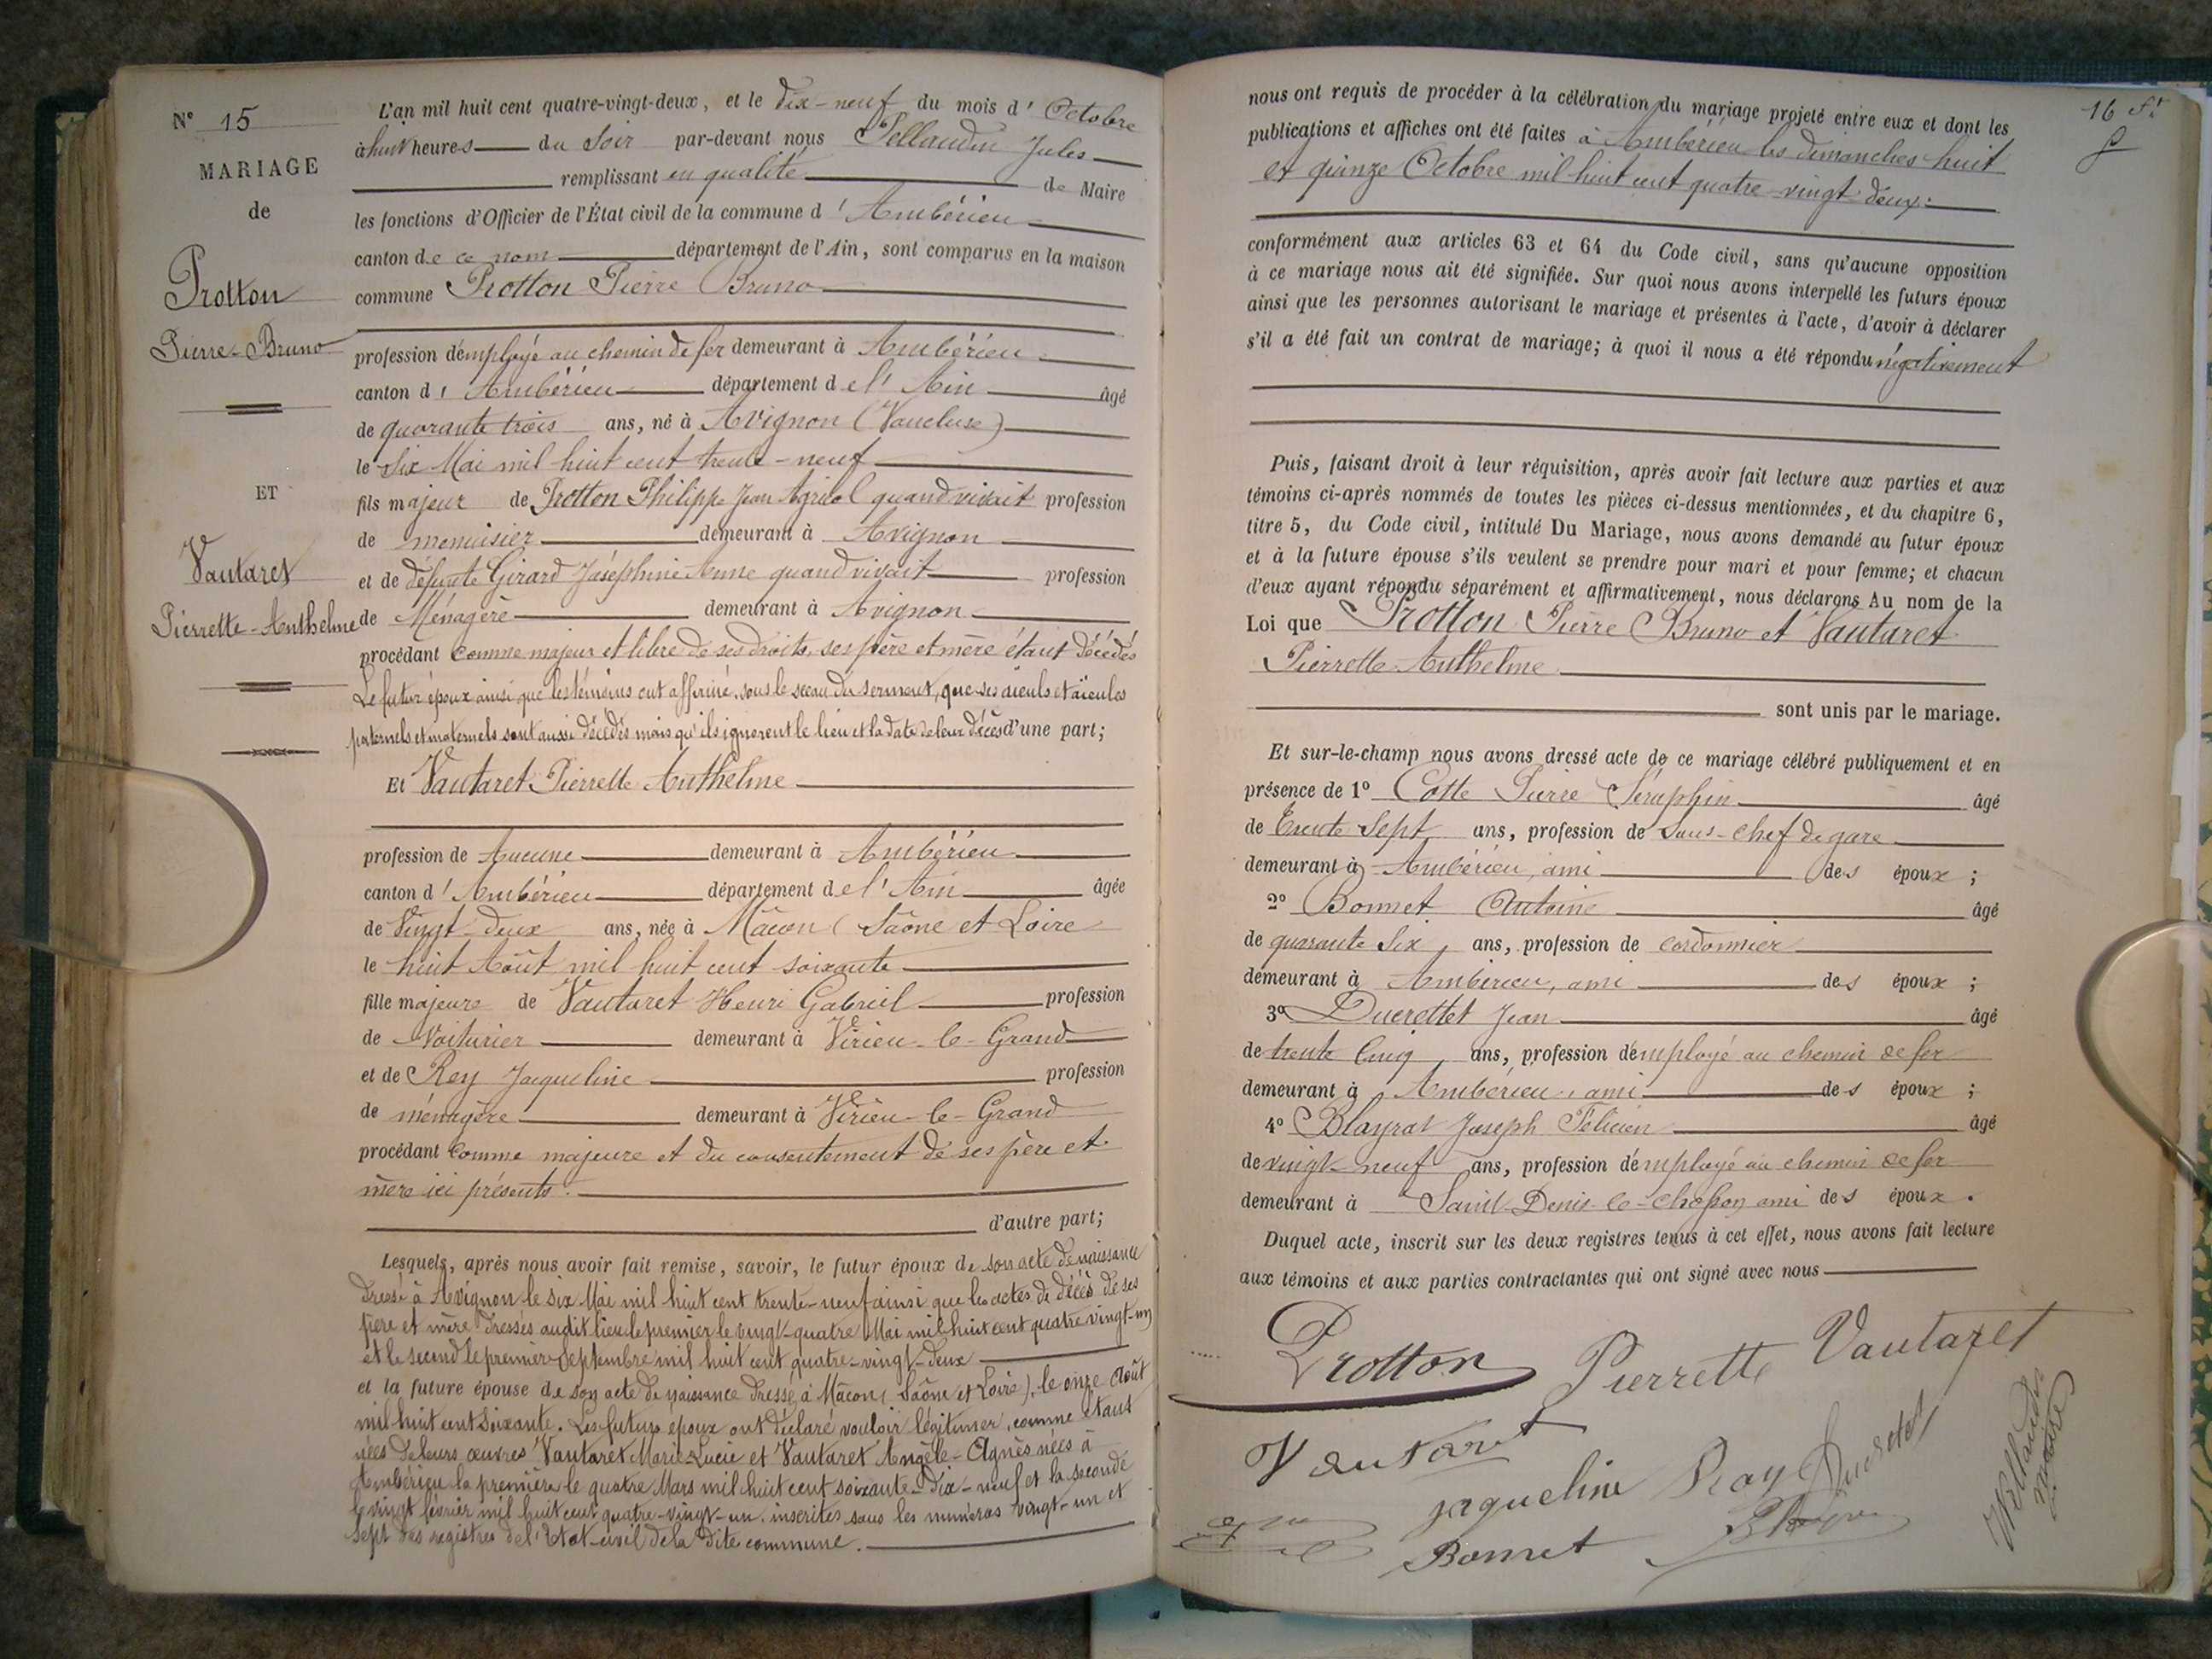 N° 15
MARIAGE
de
Protton
Pierre-Bruno
ET
Vautaret
Pierrette-Anthelme
L'an mil huit cent quatre-vingt-deux, et le dix-neuf du mois d'Octobre
à huit heures du Soir par-devant nous Pellaudin Jules
remplissant en qualité de Maire
les fonctions d'Officier de l'État civil de la commune d'Ambérieu
canton de ce nom département de l'Ain, sont comparus en la maison
commune Protton Pierre Bruno
profession d'employé au chemin de fer demeurant à Ambérieu
canton d'Ambérieu département de l'Ain âgé
de quarante trois ans, né à Avignon (Vaucluse)
le six Mai mil huit cent trente-neuf
fils majeur de Protton Philippe Jean Agricol quand vivait profession
de menuisier demeurant à Avignon
et de défunte Girard Joséphine Anne quand vivait profession
de Ménagère demeurant à Avignon
procédant comme majeur et libre de ses droits, ses père et mère étant décédés
Le futur époux ainsi que les témoins ont affirmé, sous le sceau du serment, que ses aïeuls et aïeules
paternels et maternels sont aussi décédés mais qu'ils ignorent le lieu et la date de leur décès d'une part;
Et Vautaret Pierrette Anthelme
profession de Aucune demeurant à Ambérieu
canton d'Ambérieu département de l'Ain âgée
de vingt-deux ans, née à Mâcon (Saône et Loire
le huit Août mil huit cent soixante
fille majeure de Vautaret Henri Gabriel profession
de Voiturier demeurant à Virieu-le-Grand
et de Rey Jacqueline profession
de ménagère demeurant à Virieu-le-Grand
procédant comme majeure et du consentement de ses père et
mère ici présents.
d'autre part;
Lesquels, après nous avoir fait remise, savoir, le futur époux de son acte de naissance
dressé à Avignon le six Mai mil huit cent trente-neuf ainsi que les actes de décès de ses
père et mère dressés audit lieu le premier le vingt-quatre Mai mil huit cent quatre vingt-un
et le second le premier Septembre mil huit cent quatre-vingt-deux
et la future épouse de son acte de naissance dressé à Mâcon (Saône et Loire), le onze Août
mil huit cent soixante. Les futurs époux ont déclaré vouloir légitimer, comme étant
nées de leurs œuvres Vautaret Marie-Lucie et Vautaret Angèle-Agnès nées à
Ambérieu la première le quatre Mars mil huit cent soixante-dix-neuf et la seconde
le vingt février mil huit cent quatre-vingt-un. inscrites sous les numéros vingt-un et
sept des registres de l'Etat-civil de la dite commune.
16 f.t
nous ont requis de procéder à la célébration du mariage projeté entre eux et dont les
publications et affiches ont été faites à Ambérieu les dimanches huit
et quinze Octobre mil huit cent quatre-vingt-deux.
conformément aux articles 63 et 64 du Code civil, sans qu'aucune opposition
à ce mariage nous ait été signifiée. Sur quoi nous avons interpellé les futurs époux
ainsi que les personnes autorisant le mariage et présentes à l'acte, d'avoir à déclarer
s'il a été fait un contrat de mariage; à quoi il nous a été répondu négativement
Puis, faisant droit à leur réquisition, après avoir fait lecture aux parties et aux
témoins ci-après nommés de toutes les pièces ci-dessus mentionnées, et du chapitre 6,
titre 5, du Code civil, intitulé Du Mariage, nous avons demandé au futur époux
et à la future épouse s'ils veulent se prendre pour mari et pour femme; et chacun
d'eux ayant répondu séparément et affirmativement, nous déclarons Au nom de la
Loi que Protton Pierre Bruno et Vautaret
Pierrette Anthelme
sont unis par le mariage.
Et sur-le-champ nous avons dressé acte de ce mariage célébré publiquement et en
présence de 1° Cotte Pierre Séraphin âgé
de trente sept ans, profession de sous-chef de gare
demeurant à Ambérieu, ami des époux;
2° Bonnet Antoine âgé
de quarante six ans, profession de cordonnier
demeurant à Ambérieu, ami des époux;
3° Ducrettet Jean âgé
de trente cinq ans, profession d'employé au chemin de fer
demeurant à Amberieu, ami des époux;
4° Blayrat Joseph Félicien âgé
de vingt-neuf ans, profession d'employé au chemin de fer
demeurant à Saint-Denis-le-Chosson ami des époux.
Duquel acte, inscrit sur les deux registres tenus à cet effet, nous avons fait lecture
aux témoins et aux parties contractantes qui ont signé avec nous
Protton Pierrette Vautaret
Vautaret
jaqueline Ray Ducretet
Bonnet
maire